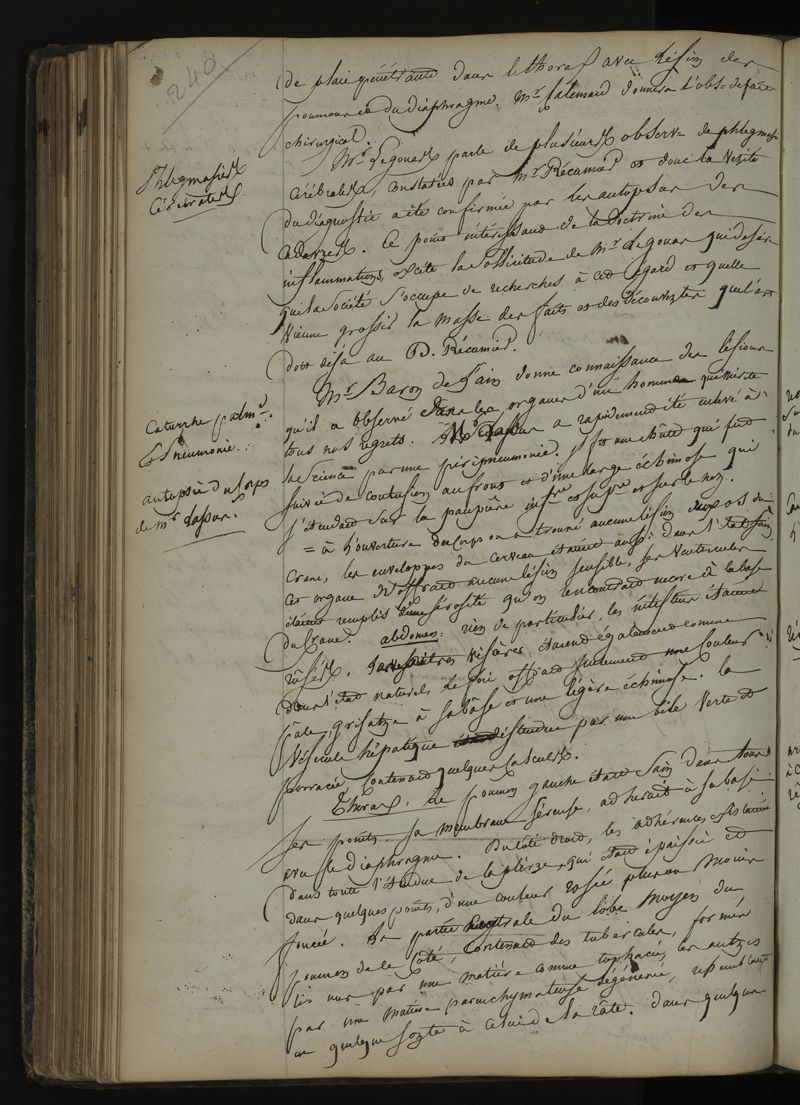 240
de plaie pénétrante dans le thorax avec lésion des
poumons et du diaphragme. Mr donnera l'obs= de fait
chirurgical.
Phlegmasies
Cérébrales
Mr Legouais parle de plusieurs observ= de phlegmas=
cérébrales, constatés par Mr Récamier et dont la vérité
du diagnostic a été confirmée par les autopsies des
cadavres. Ce point intéressant de la doctrine des
inflammations, excite la sollicitude de Mr Legouais qui désire
que la Société s'occupe de recherches à cet égard et quelle
vienne grossir la masse des faits et des découvertes que l'art
doit déjà au D. Récamier.
Catarrhe pulm.
Et Pneumonie.
Autopsie du Corps
de Mr
Mr Baron de fain donne connaissance des lésions
qu'il a observé dans les organes d'un homme qui mérite
tous nos regrets. Mr a rapidement été enlevé à
la science par une péripneumonie. Il fit une chute qui fut
suivie de contusion au front et d'une large échimose qui
s'étendait sur la paupière infre et supre et sur le nez.
= à l'ouverture du corps on a trouvé aucune lésion aux os du
crane, les enveloppes du cerveau étaient aussi dans l'état sain
cet organe n'offrait aucune lésion sensible, ses ventricules
étaient remplis d'une sérosité qu'on rencontrait encore à la base
du crane. abdomen: rien de particulier, les intestins étaient
rosés. viscères étaient également comme
dans l'état naturel, le foie offrait seulement une couleur
pâle, grisatre à sa base et une légère échimose. la
vésicule hépatique distendue par une bile verte et
porracée, contenait quelques calculs.
Thorax. le poumon gauche était sain dans tous
ses points. sa membrane séreuse, adhérait à sa base
avec le diaphragme. Du côté droit, les adhérences existaient
dans toute l'étendue de la plèvre, qui était épaissie et
dans quelques points, d'une couleur rosée plus ou moins
foncée. La partie centrale du lobe moyen du
poumon de ce côté, contenait des tubercules, formés
les uns par une matière comme tophacée, les autres
par une matière parenchymateuse dégénérée,
en quelque sorte à celui de la rate. dans quelques